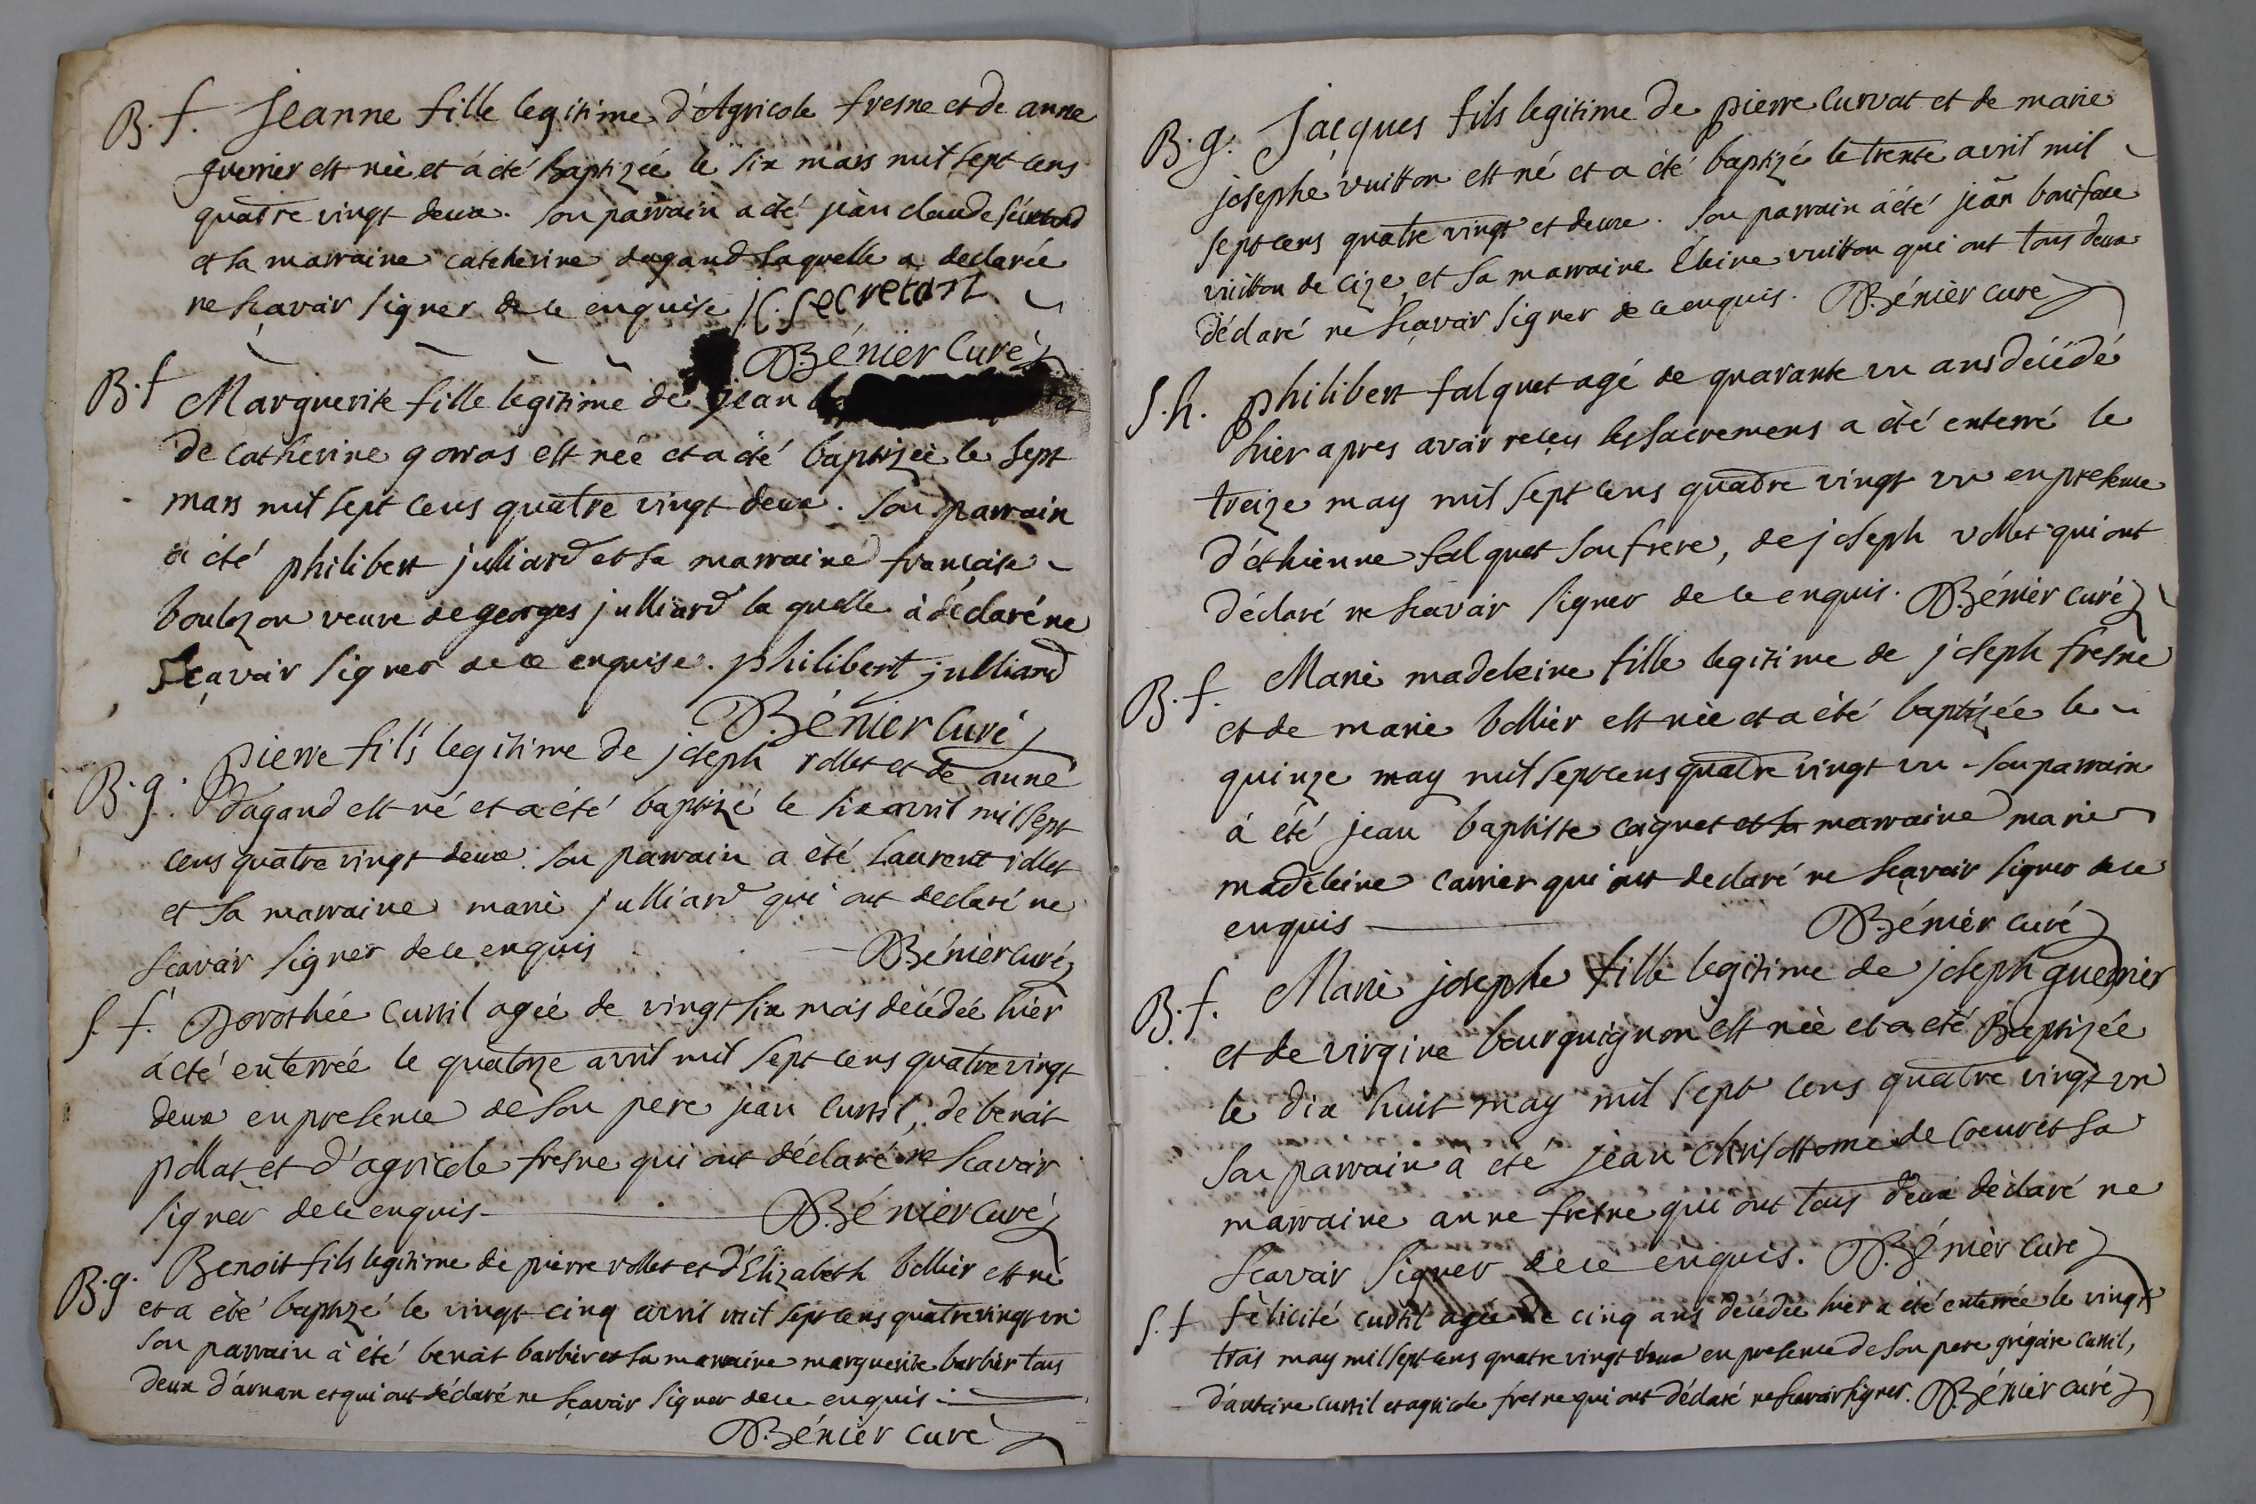 B. f. Jeanne fille legitime d'Agricole fresne et de anne
guerrier est née et a été baptizée le six mars mil sept cens
quatre vingt deux. son parrain a été jean claude
et sa marraine catherine dagand laquelle a declarée
ne sçavoir signer de ce enquise J C. secretan
Bénier curé
B. f Marguerite fille legitime de jean
de catherine gorras est née et a été baptizée le sept
mars mil sept cens quatre vingt deux. son parrain
a été philibert julliard et sa marraine françoise
boulezon veuve de georges julliard la quelle à déclaré ne
sçavoir signer de ce enquise. philibert julliard
Bénier curé
B. g. pierre fils legitime de joseph vollet et de anne
dagand est né et a été baptizé le six avril mil sept
cens quatre vingt deux. son parrain a été Laurent vollet
et sa marraine marie julliard qui ont declaré ne
scavoir signer de ce enquis Bénier curé
S. f. Dorothée curtil agée de vingt six mois décédée hier
a été enterrée le quatorze avril mil sept cens quatre vingt
deux en presence de son pere jean curtil, de benoit
pollat et d'agricole fresne qui ont déclaré ne scavoir
signer de ce enquis Bénier curé
B. g. Benoit fils legitime de pierre vollet et d'Elizabeth bollier est né
et a été baptizé le vingt cinq avril mil sept cens quatre vingt un
son parrain à été benoit barbier et sa marraine marguerite barbier tous
deux d'arnan et qui ont déclaré ne sçavoir signer de ce enquis.
Bénier curé
B. g. Jacques fils legitime de pierre curvat et de marie
josephe vuitton est né et a été baptizé le trente avril mil
sept cens quatre vingt et deux. son parrain a été jean boniface
vuitton de cize et sa marraine vuitton qui ont tous deux
déclaré ne sçavoir signer de ce enquis. Bénier curé
S. h. philibert falquet agé de quarante un ans décédé
hier apres avoir reçu les sacremens a été enterré le
treize may mil sept cens quatre vingt un en presence
d'éthienne falquet son frere, de joseph vollet qui ont
déclaré ne scavoir signer de ce enquis. Bénier curé
B. f. Marie madeleine fille legitime de joseph fresne
et de marie bollier est née et a été baptizée le
quinze may mil sept cens quatre vingt un - son parrain
à été jean baptiste cagnet et sa marraine marie
madeleine carrier qui ont declaré ne sçavoir signer de ce
enquis Bénier curé
B. f. Marie josephe fille legitime de joseph guerrier
et de virgine bourguignon est née et a été Baptizée
le dix huit may mil sept cens quatre vingt un
son parrain à été jean chrisottome de coeur et sa
marraine anne fresne qui ont tous deux déclaré ne
scavoir signer de ce enquis. Bénier curé
S. f felicité curtil agée de cinq ans décédée hier a été enterrée le vingt
trois may mil sept cens quatre vingt deux en presence de son pere grégoire curtil,
d'antoine curtil et agricole fresne qui ont déclaré ne scavoir signer. Bénier curé